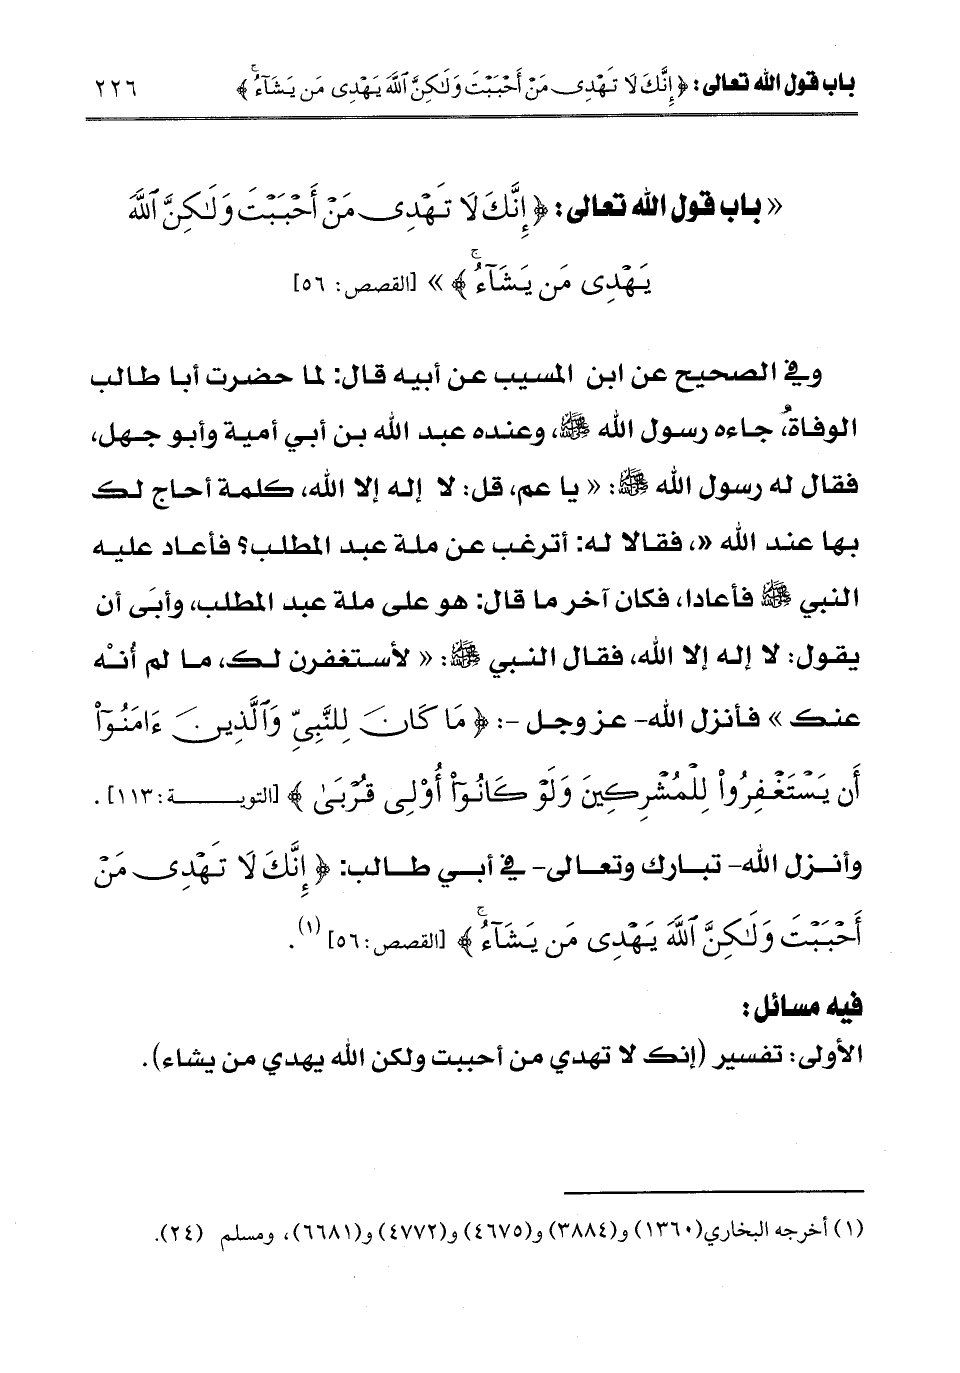 باب قول الله تعالى: ﴿ إِنَّكَ لَا تَهْدِى مَنْ أَحْبَبْتَ وَلَٰكِنَّ ٱللَّهَ يَهْدِى مَن يَشَآءُ ۚ ﴾ ٢٢٦
« باب قول الله تعالى: ﴿ إِنَّكَ لَا تَهْدِى مَنْ أَحْبَبْتَ وَلَٰكِنَّ ٱللَّهَ
يَهْدِى مَن يَشَآءُ ۚ ﴾ » [القصص: ٥٦]
وفي الصحيح عن ابن المسيب عن أبيه قال: لما حضرت أبا طالب
الوفاةُ، جاءه رسول الله ﷺ، وعنده عبد الله بن أبي أمية وأبو جهل،
فقال له رسول الله ﷺ: « يا عم، قل: لا إله إلا الله، كلمة أحاج لك
بها عند الله «، فقالا له: أترغب عن ملة عبد المطلب؟ فأعاد عليه
النبي ﷺ فأعادا، فكان آخر ما قال: هو على ملة عبد المطلب، وأبَى أن
يقول: لا إله إلا الله، فقال النبي ﷺ: « لأستغفرن لك، ما لم أُنْه
عنك » فأنزل الله- عز وجل -: ﴿ مَا كَانَ لِلنَّبِيِّ وَٱلَّذِينَ ءَامَنُوٓا۟
أَن يَسْتَغْفِرُوا۟ لِلْمُشْرِكِينَ وَلَوْ كَانُوٓا۟ أُو۟لِى قُرْبَىٰ ﴾ [التوبـــــــة: ١١٣] .
وأنـزل الله- تبارك وتعـالى- في أبـي طـالب: ﴿ إِنَّكَ لَا تَهْدِى مَنْ
أَحْبَبْتَ وَلَٰكِنَّ ٱللَّهَ يَهْدِى مَن يَشَآءُ ۚ ﴾ [القصص: ٥٦] (١) .
فيه مسائل:
الأولى: تفسير (إنك لا تهدي من أحببت ولكن الله يهدي من يشاء).
(١) أخرجه البخاري(١٣٦٠) و(٣٨٨٤) و(٤٦٧٥) و(٤٧٧٢) و(٦٦٨١)، ومسلم (٢٤).